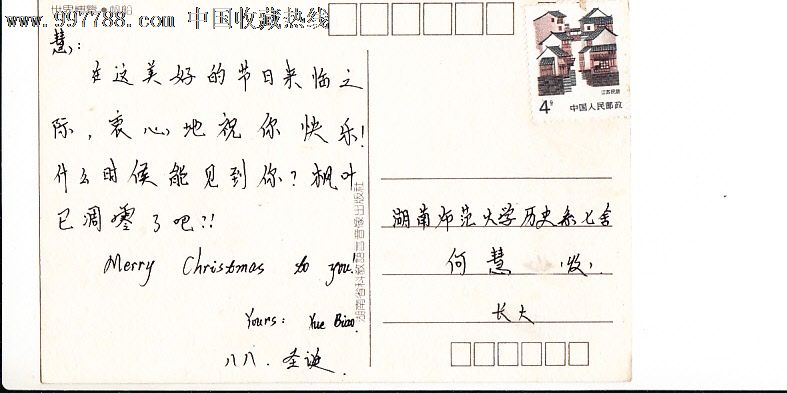 世界
www.997788.com 中国收藏热线
慧:
在这美好的节日来临之
际，衷心地祝你快乐!
什么时候能见到你?枫叶
已凋零了吧?!
Merry Christmas to you!
Yours: Xue Biao
八八.圣诞.
湖南省科教语言音像出版社
江苏民居
4分 中国人民邮政
湖南师范大学历史系七舍
何慧 (收).
长大